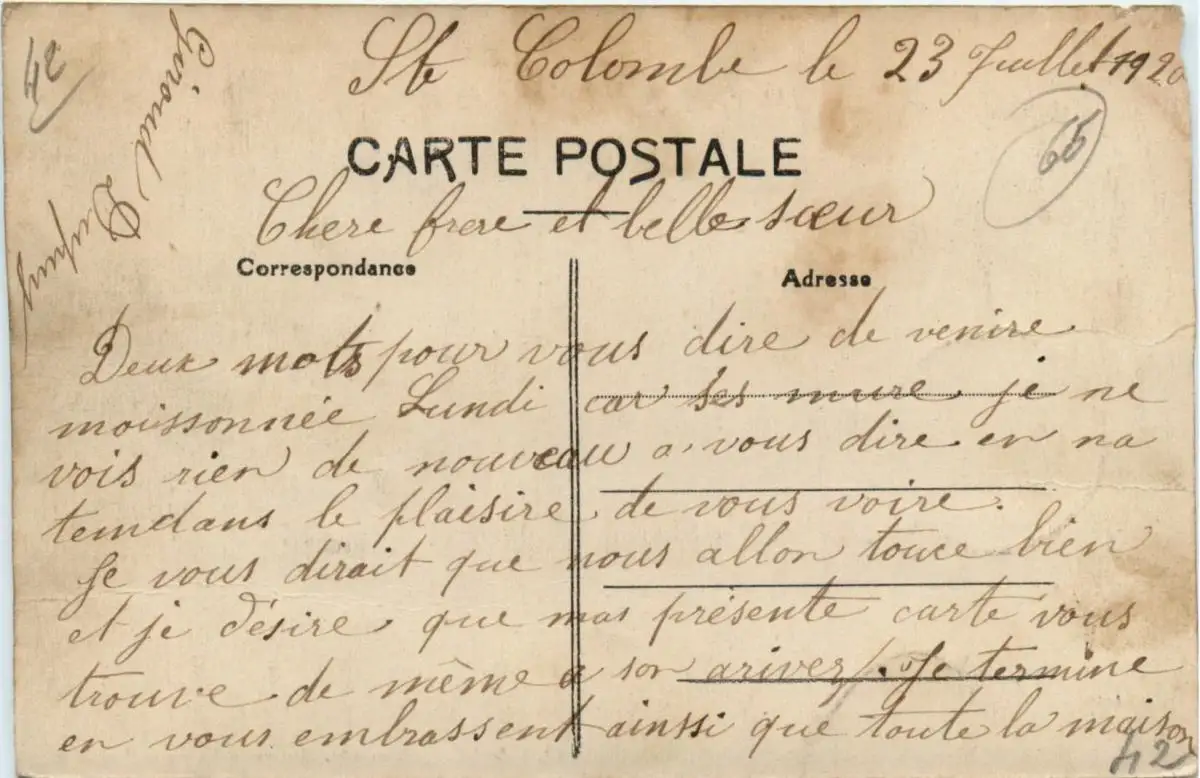 42
Giroud Dupuy
Ste Colombe le 23 Juillet 1920
65
CARTE POSTALE
Chere frere et belle sœur
Correspondance
Adresse
Deux mots pour vous dire de venire
moissonnée Lundi car ses mure je ne
vois rien de nouveau a vous dire en na
temdans le plaisire de vous voire.
Je vous dirait que nous allon touce bien
et je désire que mas présente carte vous
trouve de même a son arivez. Je termine
en vous embrassent ainssi que toute la maison
42